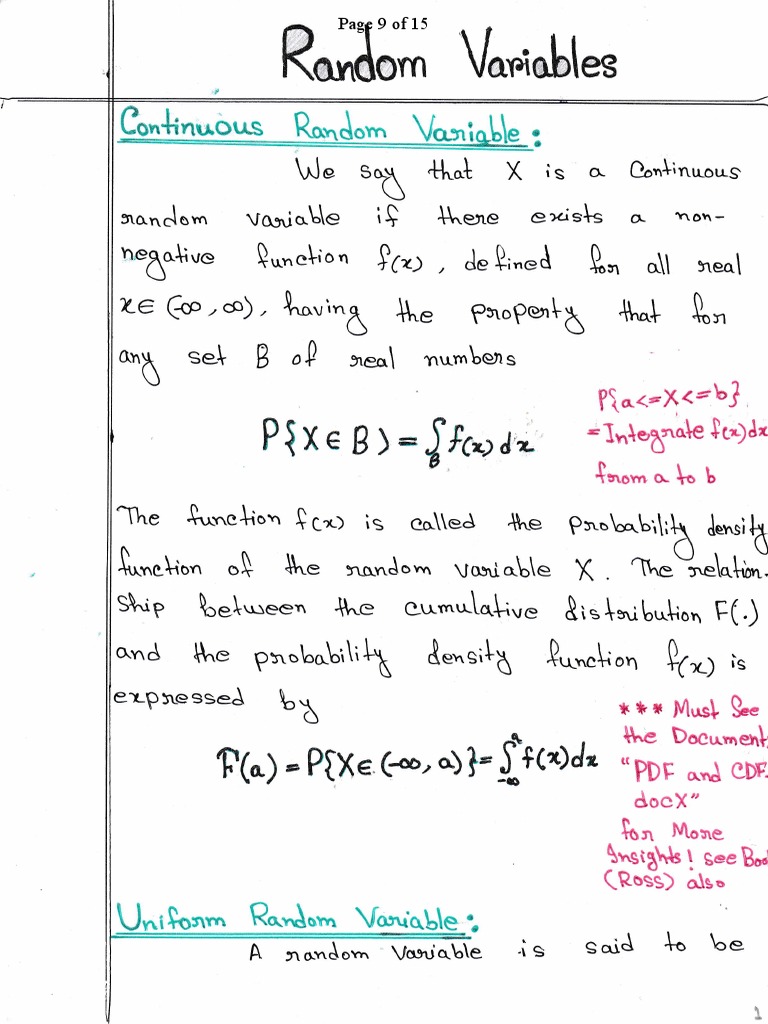 Page 9 of 15
Random Variables
Continuous Random Variable:
We say that X is a Continuous
random variable if there exists a non-
negative function f(x), defined for all real
x∈ (-∞, ∞), having the property that for
any set B of real numbers
P{a<=X<=b}
= Integrate f(x)dx
from a to b
P{X∈B) = ∫_B f(x) dx
The function f(x) is called the probability density
function of the random variable X. The relation-
ship between the cumulative distribution F(.)
and the probability density function f(x) is
expressed by
F(a) = P{X∈ (-∞, a)} = ∫_{-∞}^a f(x)dx
*** Must See
the Document
"PDF and CDF.
docX"
for More
Insights! see Boo
(Ross) also
Uniform Random Variable:
A random variable is said to be
1